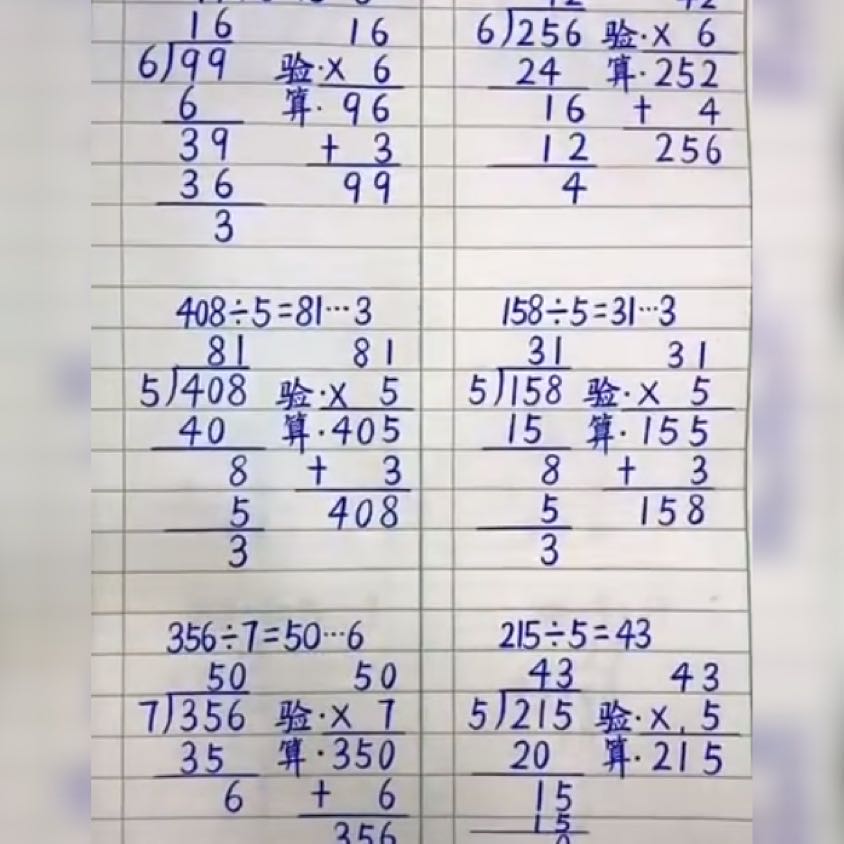 16 16
6)99 验·× 6
6 算·96
39 + 3
36 99
3
42 42
6)256 验·× 6
24 算·252
16 + 4
12 256
4
408÷5=81···3
81 81
5)408 验·× 5
40 算·405
8 + 3
5 408
3
158÷5=31···3
31 31
5)158 验·× 5
15 算·155
8 + 3
5 158
3
356÷7=50···6
50 50
7)356 验·× 7
35 算·350
6 + 6
356
215÷5=43
43 43
5)215 验·× 5
20 算·215
15
15
0